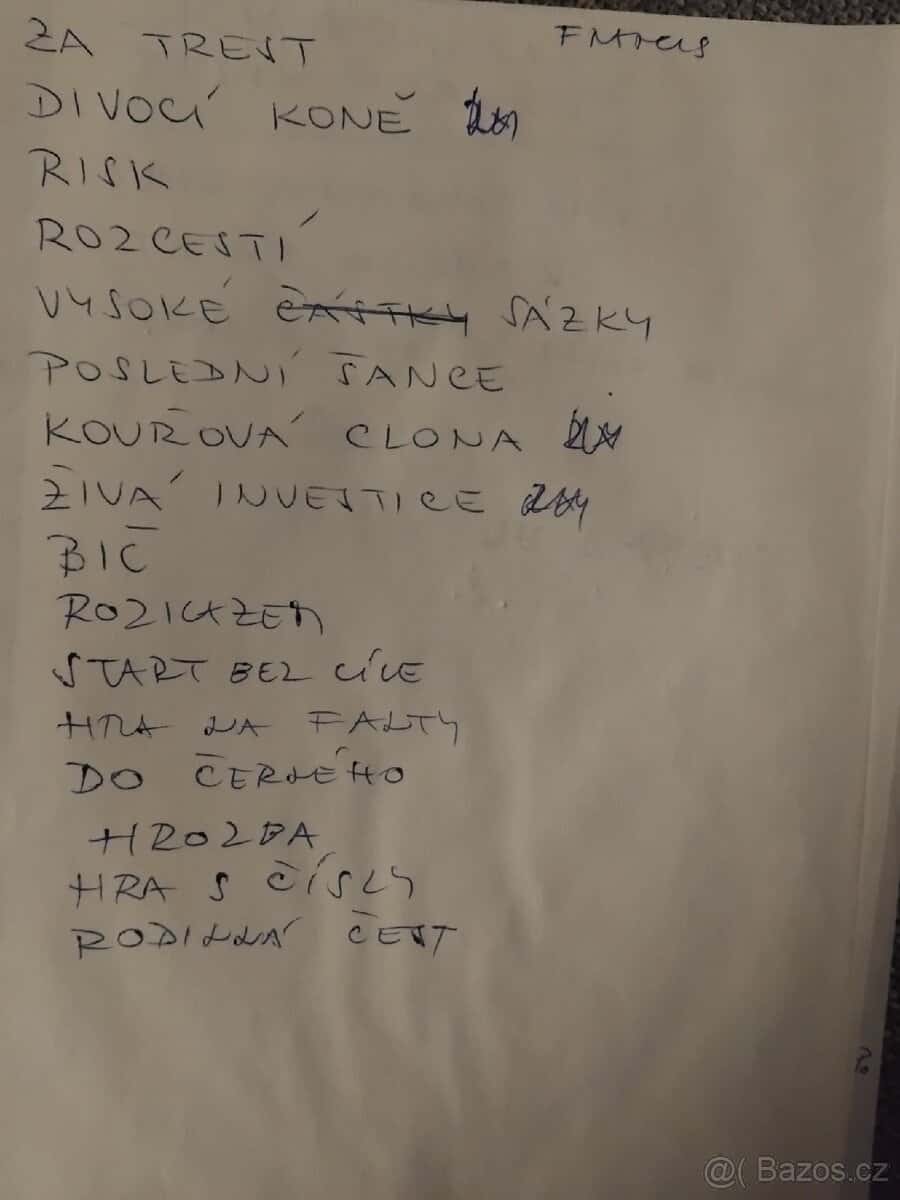 ZA TREST FRANCIS
DIVOCÍ KONĚ
RISK
ROZCESTÍ
VYSOKÉ ČÁSTKY SÁZKY
POSLEDNÍ ŠANCE
KOUŘOVÁ CLONA
ŽIVÁ INVESTICE
BIČ
ROZKAZEM
START BEZ CÍLE
HRA NA FAKTY
DO ČERNÉHO
HROZBA
HRA S ČÍSLY
RODINNÁ ČEST
@( Bazos.cz